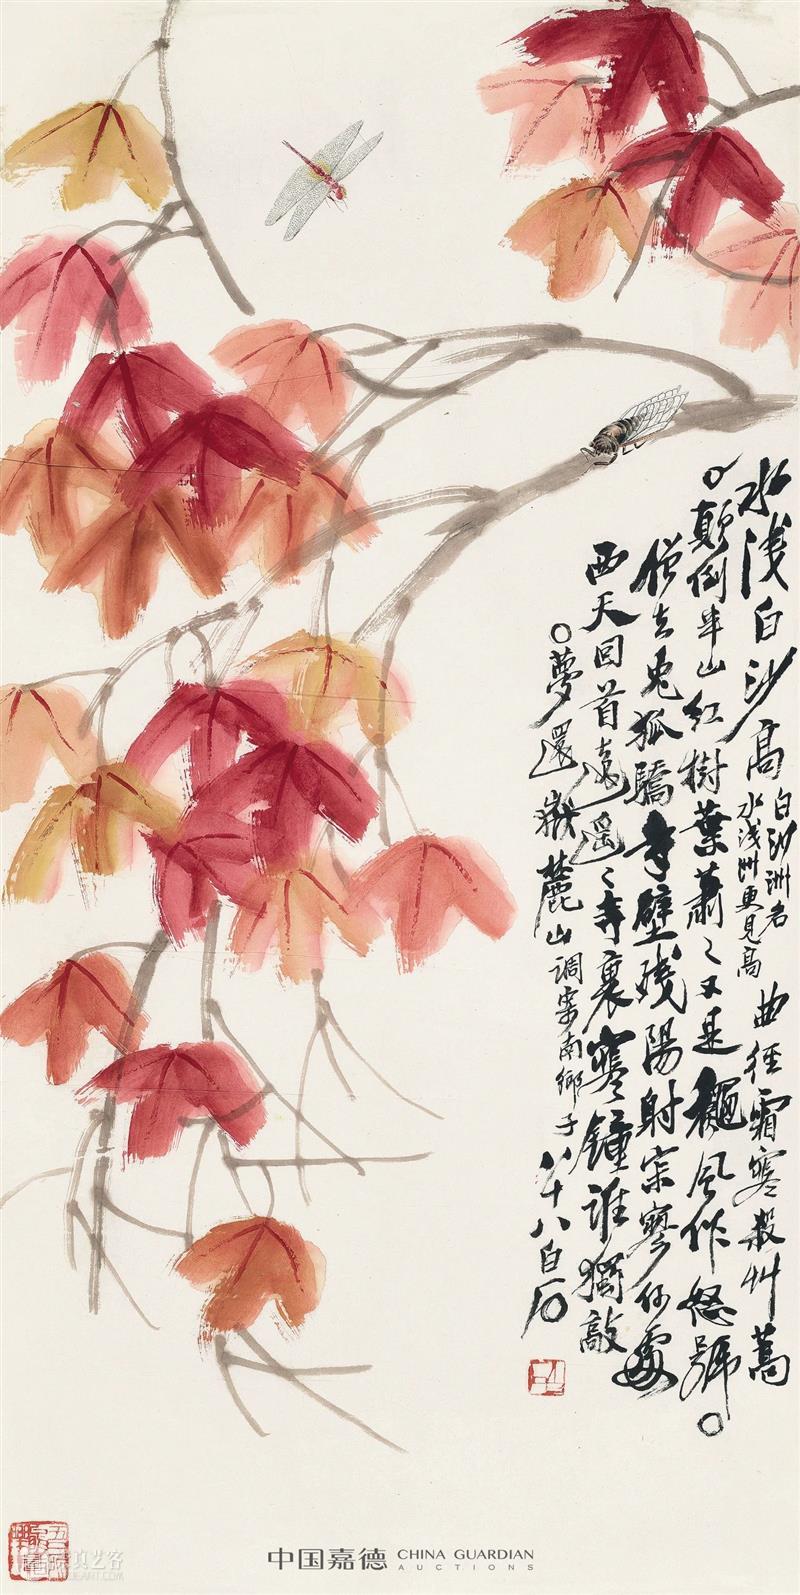 水淺白沙高 白沙洲名 水淺洲更見高 曲徑霜寒殺艸蒿
〇顛倒半山紅樹葉蕭〻又是龝風作怒號〇
僧去兎狐驕寺壁殘陽射寂寥何處
西天回首遠遙〻寺裏寒鐘誰獨敲
〇夢還嶽麓山調寄南鄉子八十八白石
中国嘉德 CHINA GUARDIAN
AUCTIONS
真艺客